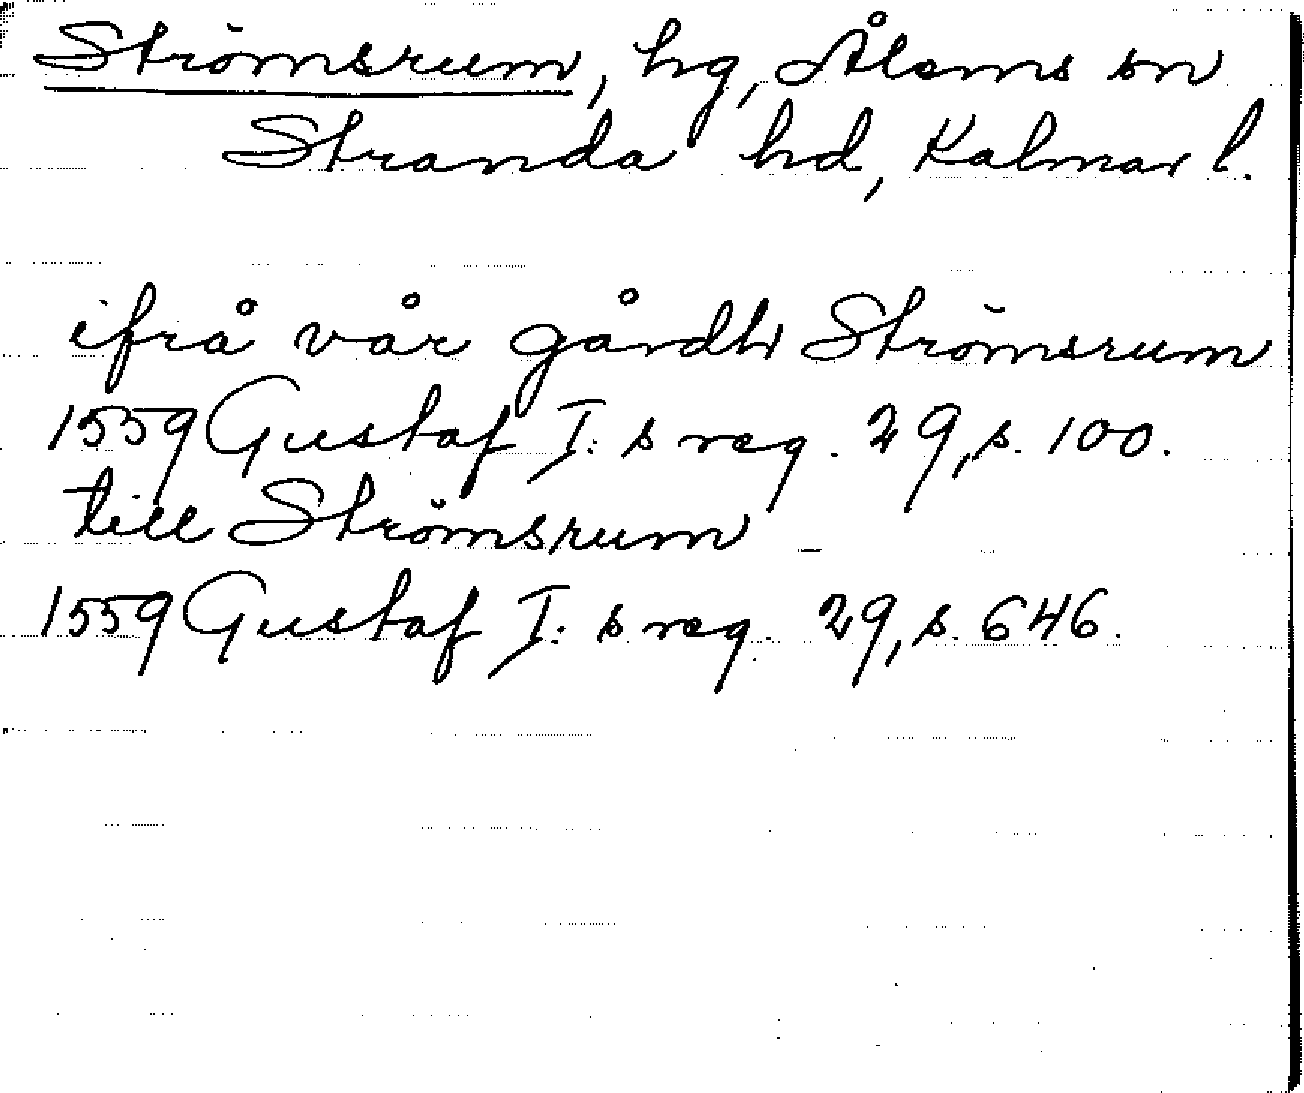 Strömsrum, hg, Ålems sn
Stranda hd, Kalmar l.
ifrå vår gårdh Strömsrum
1559 Gustaf I:s reg. 29, s. 100.
till Strömsrum –
1559 Gustaf I:s reg. 29, s. 646.